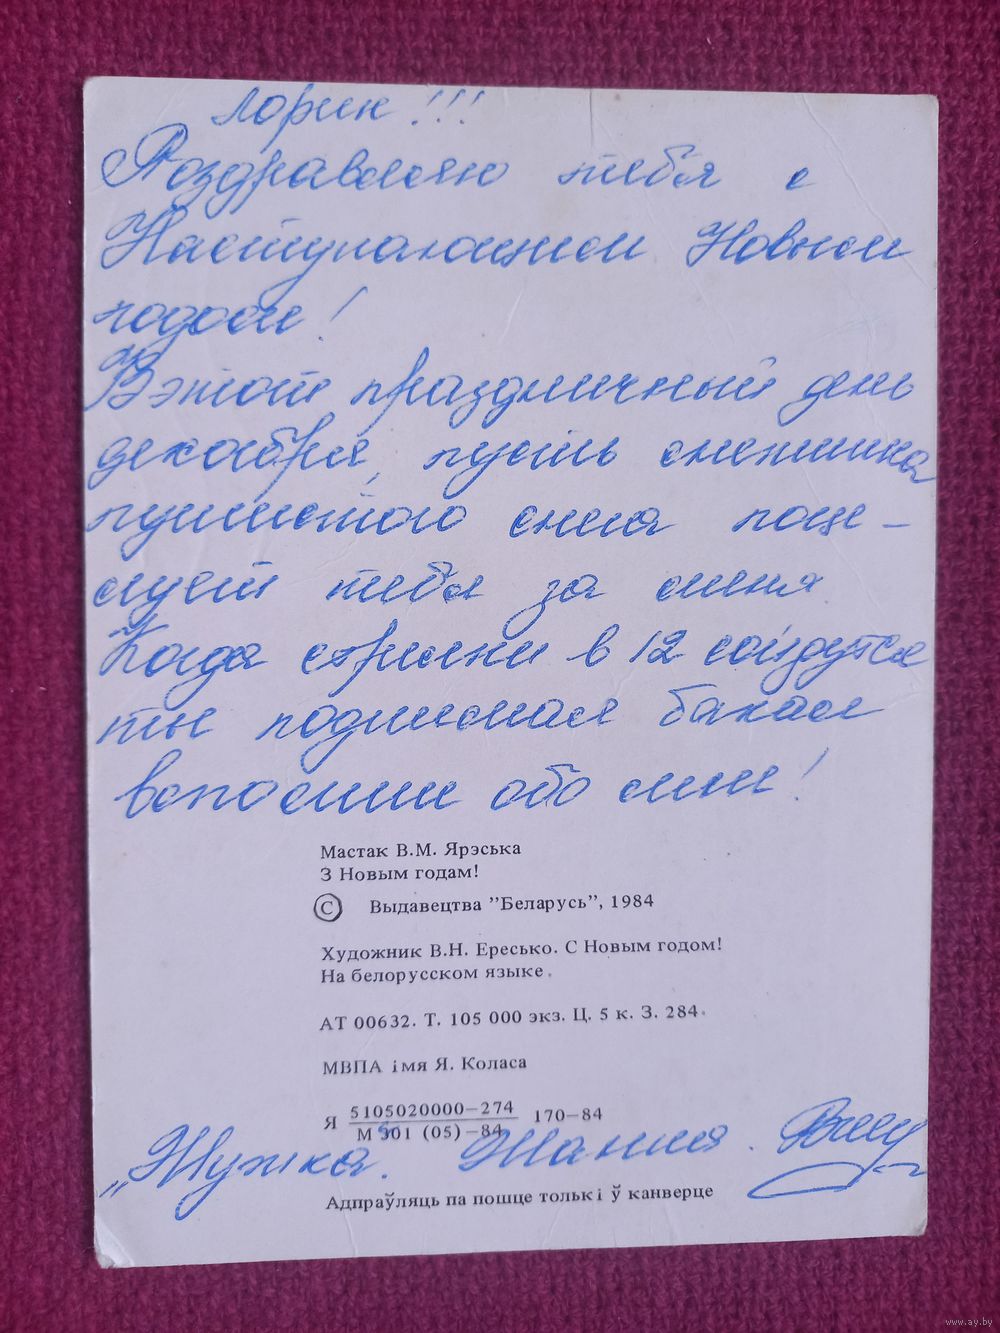 Лорик!!!
Поздравляю тебя с
Наступающим Новым
годом!
В этот праздничный день
декабря, пусть снежинка
пушистого снега поце-
лует тебя за меня
Когда стрелки в 12 сойдутся
ты поднимая бакал
вспомни обо мне!
Мастак В.М. Ярэська
З Новым годам!
© Выдавецтва "Беларусь", 1984
Художник В.Н. Ересько. С Новым годом!
На белорусском языке.
АТ 00632. Т. 105 000 экз. Ц. 5 к. З. 284.
МВПА імя Я. Коласа
Я 5105020000—274 170—84
М 301 (05)—84
„Жужка. Жанна.
Адпраўляць па пошце толькі ў канверце
www.ay.by